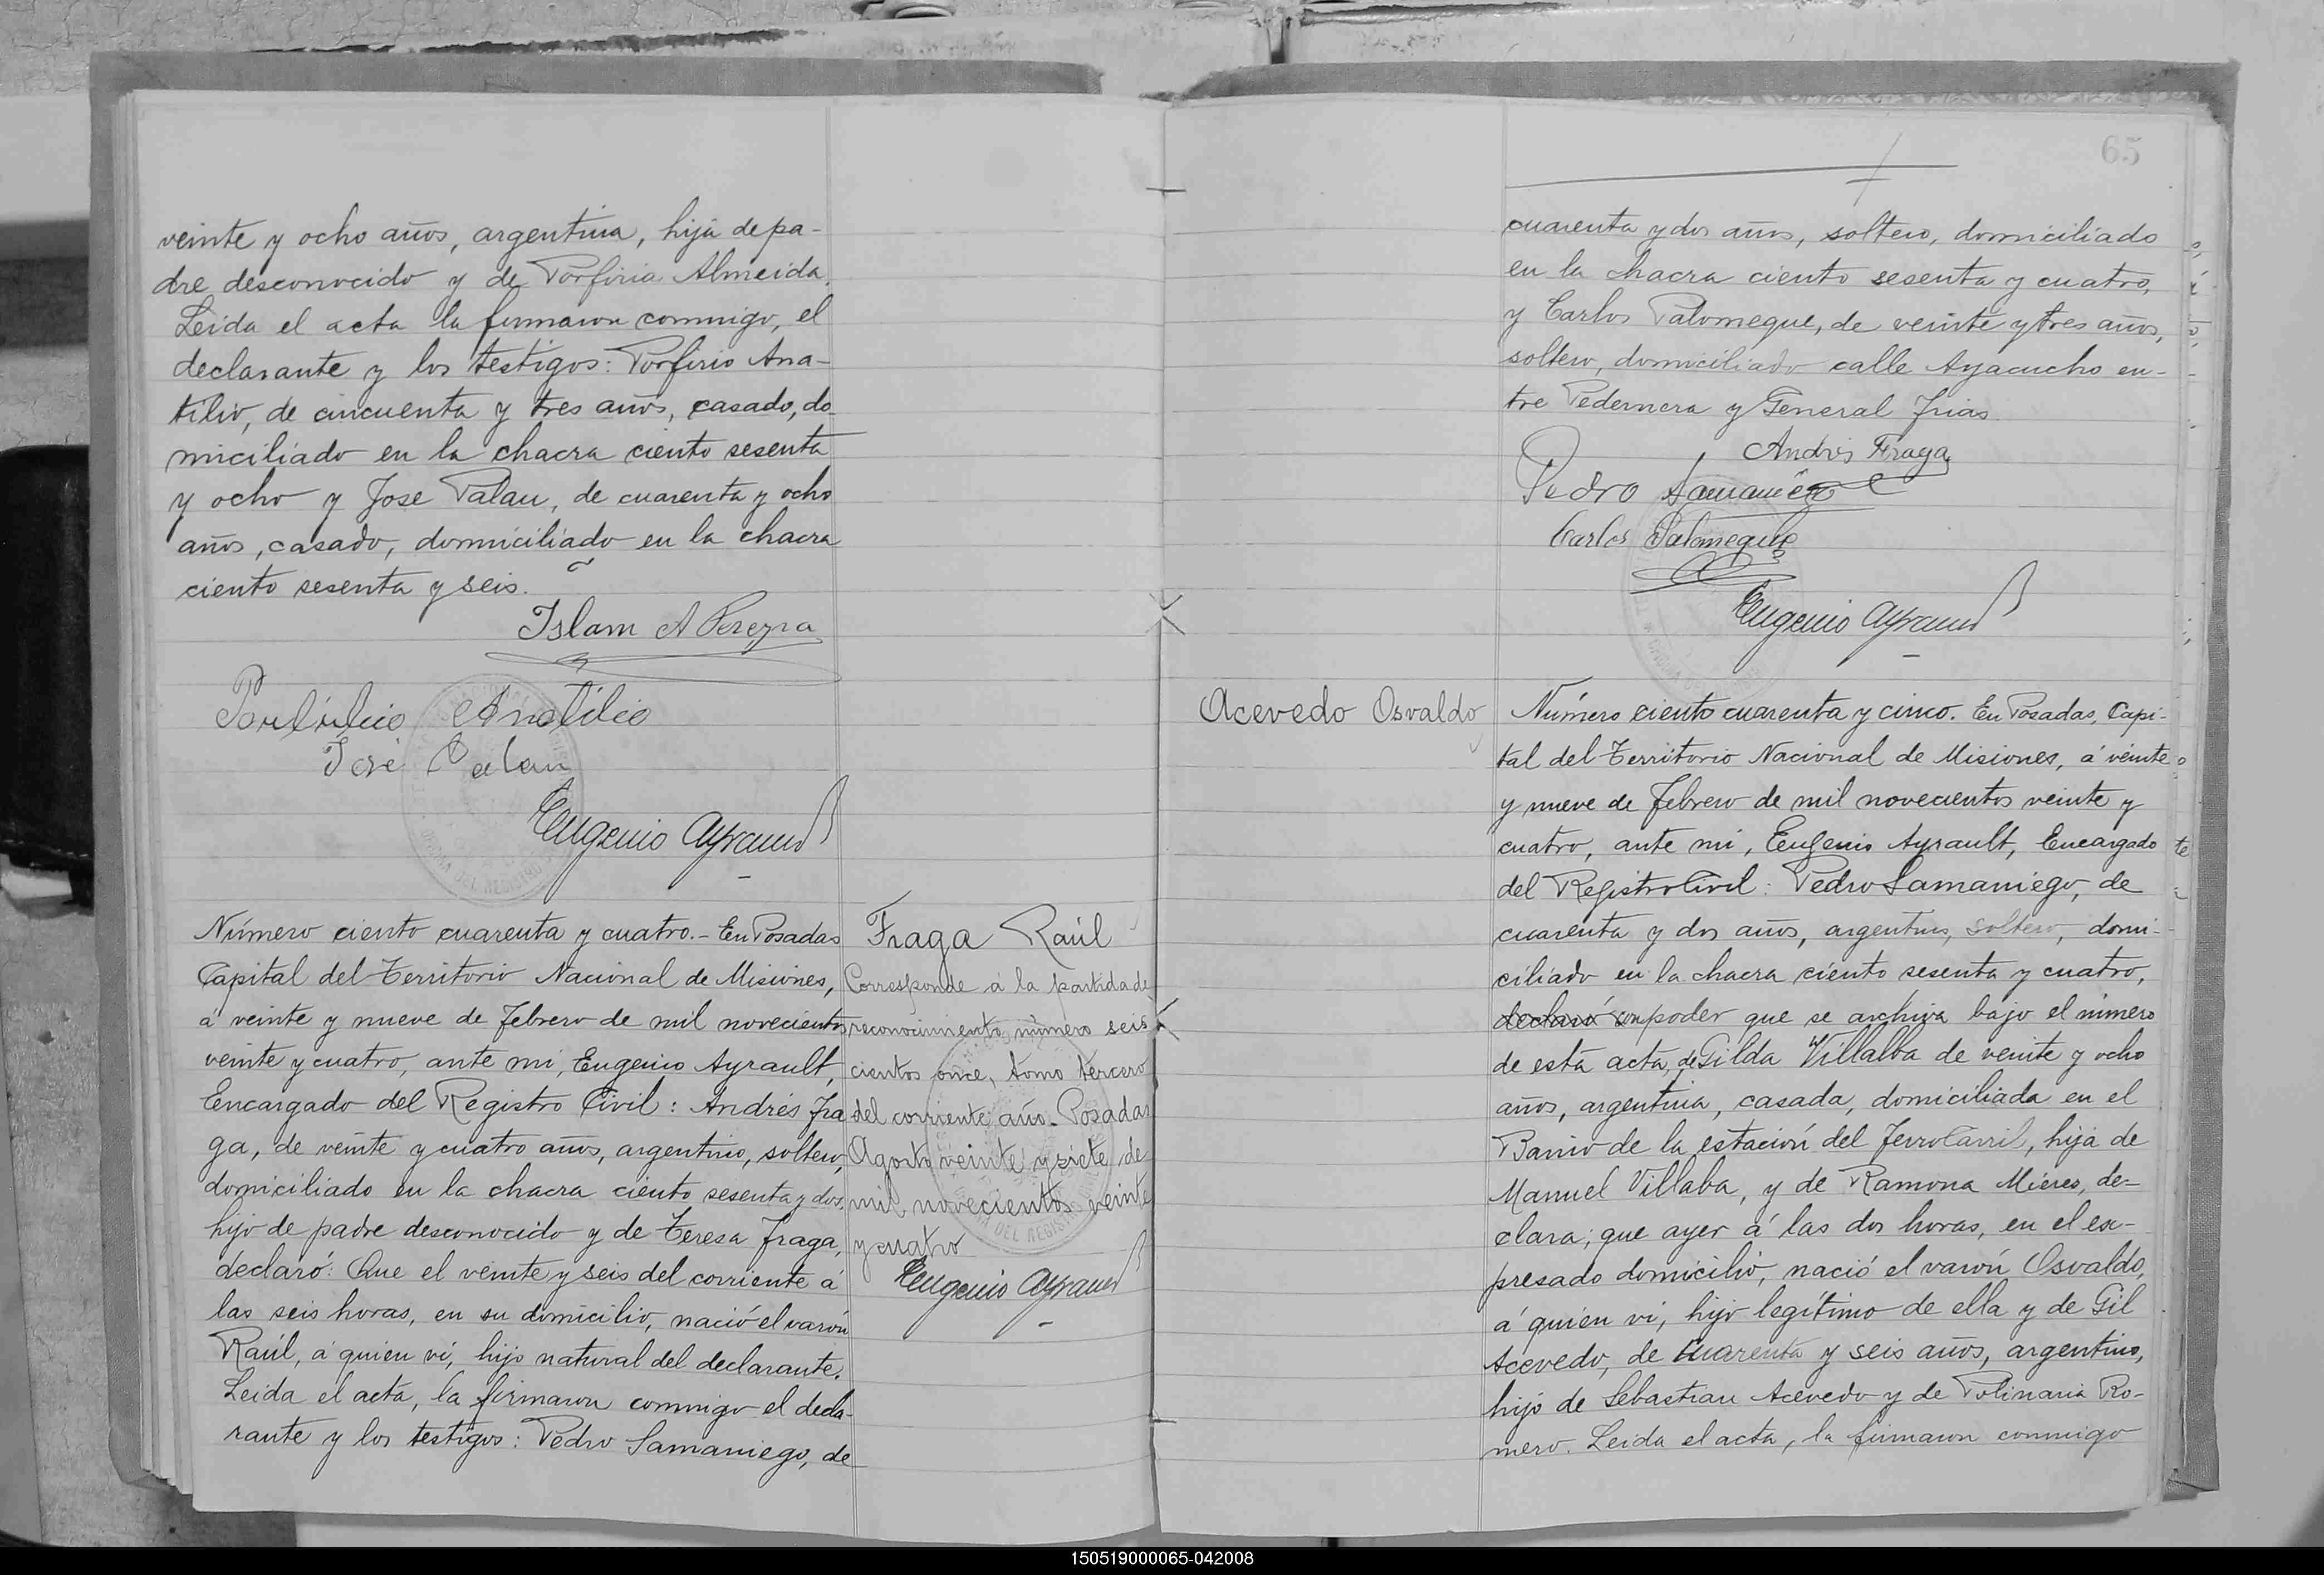 veinte y ocho años, argentina, hija de pa-
dre desconocido y de Porfiria Almeida.
Leida el acta la firmaron conmigo, el
declarante y los testigos: Porfirio Ana-
tilio, de cincuenta y tres años, casado, do-
miciliado en la chacra ciento sesenta
y ocho y Jose Palau, de cuarenta y ocho
años, casado, domiciliado en la chacra
ciento sesenta y seis.
Islam A Pereyra
Anatilio
José Palau
Eugenio Ayrault
Número ciento cuarenta y cuatro.- En Posadas
Capital del Territorio Nacional de Misiones,
á veinte y nueve de Febrero de mil novecientos
veinte y cuatro, ante mi, Eugenio Ayrault,
Encargado del Registro Civil: Andrés Fra
ga, de veinte y cuatro años, argentino, soltero,
domiciliado en la chacra ciento sesenta y dos,
hijo de padre desconocido y de Teresa Fraga,
declaró: Que el veinte y seis del corriente á
las seis horas, en su domicilio, nació el varón
Raúl, á quien vi, hijo natural del declarante.
Leida el acta, la firmaron conmigo el decla-
rante y los testigos: Pedro Samaniego, de
Fraga Raúl
Corresponde á la partida de
reconocimiento número seis
cientos once, tomo tercero
del corriente año. Posadas
Agosto veinte y siete de
mil novecientos veinte
y cuatro
Eugenio Ayrault
65
cuarenta y dos años, soltero, domiciliado
en la chacra ciento sesenta y cuatro,
y Carlos Palomeque, de veinte y tres años,
soltero, domiciliado calle Ayacucho en-
tre Pedernera y General Frias.
Andrés Fraga
Pedro Samaniego
Carlos Palomeque
Eugenio Ayrault
Acevedo Osvaldo
Número ciento cuarenta y cinco. En Posadas, Capi-
tal del Territorio Nacional de Misiones, á veinte
y nueve de Febrero de mil novecientos veinte y
cuatro, ante mi, Eugenio Ayrault, Encargado
del Registro Civil: Pedro Samaniego, de
cuarenta y dos años, argentino, soltero, domi-
ciliado en la chacra ciento sesenta y cuatro,
declaró con poder que se archiva bajo el número
de esta acta, de Gilda Villalba de veinte y ocho
años, argentina, casada, domiciliada en el
Barrio de la estación del Ferro Carril, hija de
Manuel Villaba, y de Ramona Mieres, de-
clara; que ayer á las dos horas, en el ex-
presado domicilio, nació el varón Osvaldo,
á quien vi, hijo legítimo de ella y de Gil
Acevedo, de cuarenta y seis años, argentino,
hijo de Sebastian Acevedo y de Polinaria Ro-
mero. Leida el acta, la firmaron conmigo
150519000065-042008